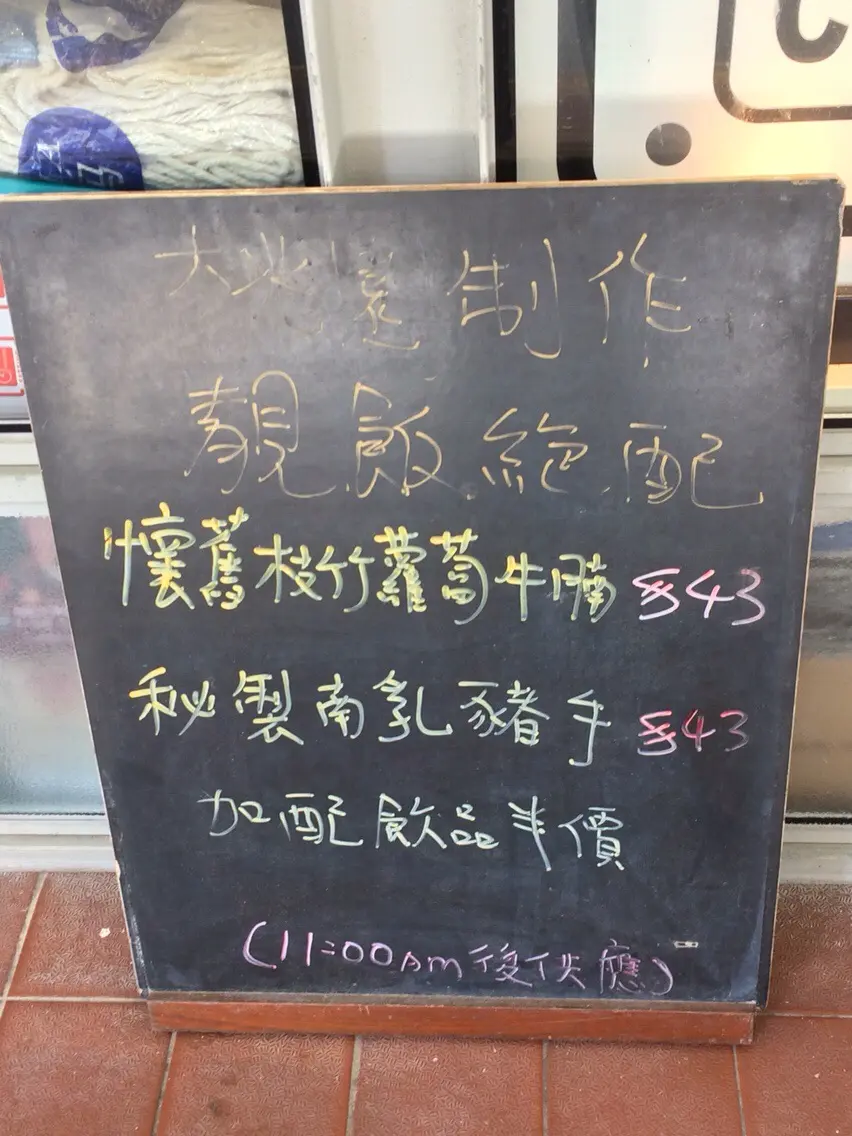 大光還制作
靚飯絕配
懷舊枝竹蘿蔔牛腩 $43
秘製南乳豬手 $43
加配飲品半價
(11:00AM後供應)